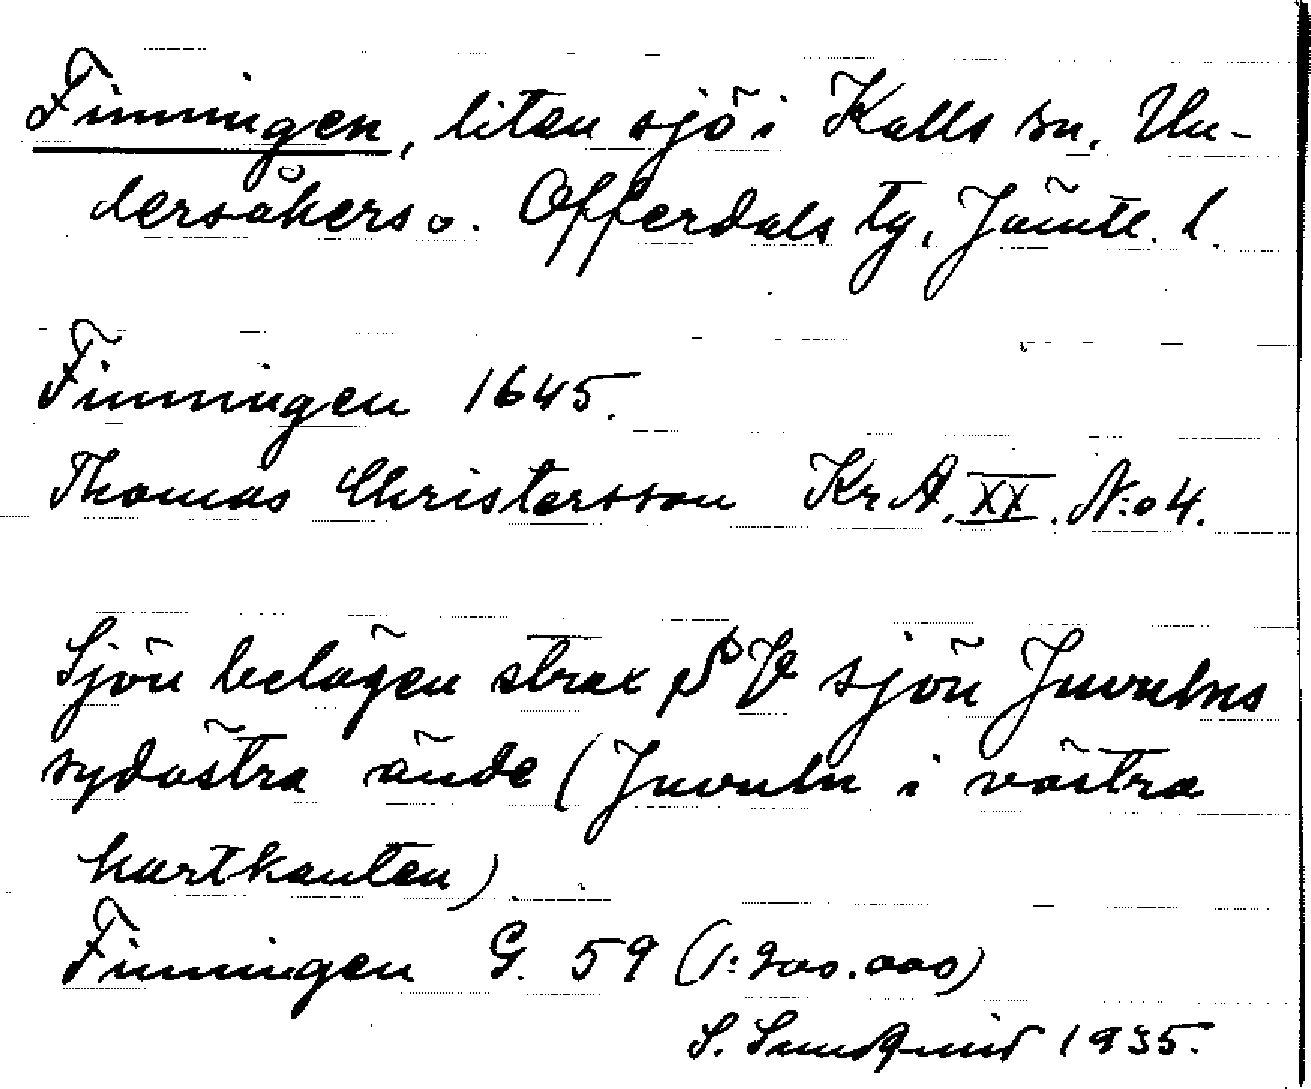 Finningen, liten sjö i Kalls sn, Un-
dersåkers o. Offerdals tg, Jämtl. l.
Finningen 1645.
Thomas Christersson Kr A. XX. N:o 4.
Sjön belägen strax S V sjön Juvulns
sydöstra ände (Juvuln i västra
kartkanten)
Finningen G. 59 (1:200.000)
S. Sundquist 1935.